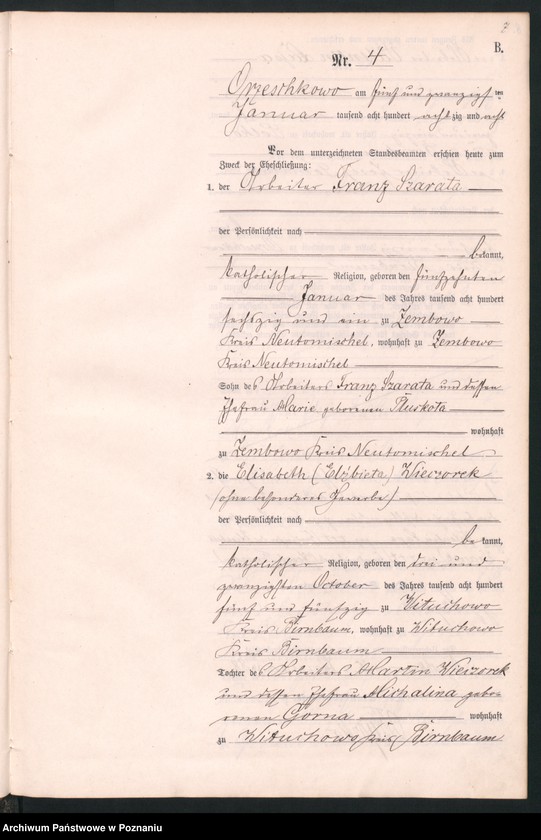 7
B.
Nr. 4
Orzeschkowo am fünf und zwanzigsten
Januar tausend acht hundert achtzig und acht
Vor dem unterzeichneten Standesbeamten erschien heute zum
Zweck der Eheschließung:
1. der Arbeiter Franz Szarata
der Persönlichkeit nach
bekannt,
katholischer Religion, geboren den fünfzehnten
Januar des Jahres tausend acht hundert
sechszig und ein zu Zembowo
Kreis Neutomischel, wohnhaft zu Zembowo
Kreis Neutomischel
Sohn des Arbeiters Franz Szarata und dessen
Ehefrau Marie geborenen Pluskota
wohnhaft
zu Zembowo Kreis Neutomischel
2. die Elisabeth (Elżbieta) Wieczorek
(ohne besonderes Gewerbe)
der Persönlichkeit nach
bekannt,
katholischer Religion, geboren den drei und
zwanzigsten October des Jahres tausend acht hundert
fünf und fünfzig zu Wituchowo
Kreis Birnbaum, wohnhaft zu Wituchowo
Kreis Birnbaum
Tochter des Arbeiters Martin Wieczorek
und dessen Ehefrau Michalina gebo
renen Gorna wohnhaft
zu Wituchowo Kreis Birnbaum
Archiwum Państwowe w Poznaniu